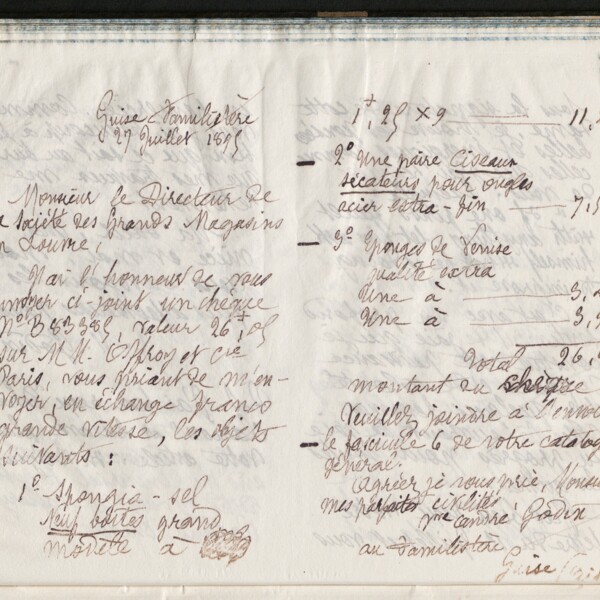 Guise Familistère
27 Juillet 1895
Monsieur le Directeur de
la Société des Grands Magasins
du Louvre,
J'ai l'honneur de vous
envoyer ci-joint un chèque
N° B 83385, valeur 26f,05
sur M.M. Offroy et Cie
Paris, vous priant de m'en-
voyer, en échange franco
grande vitesse, les objets
suivants :
1° Spongia - sel
Neuf boîtes grand
modèle à
1f,25 × 9 11,
2° Une paire Ciseaux
sécateurs pour ongles
acier extra-fin 7,
3° Eponges de Venise
qualité extra
Une à 3,
Une à 3,
Total 26,
montant du chèque
Veuillez joindre à l'envoi
le fascicule 6 de votre catalog
général.
Agréez je vous prie, Monsie
mes parfaites civilités
Godin
au Familistère
Guise